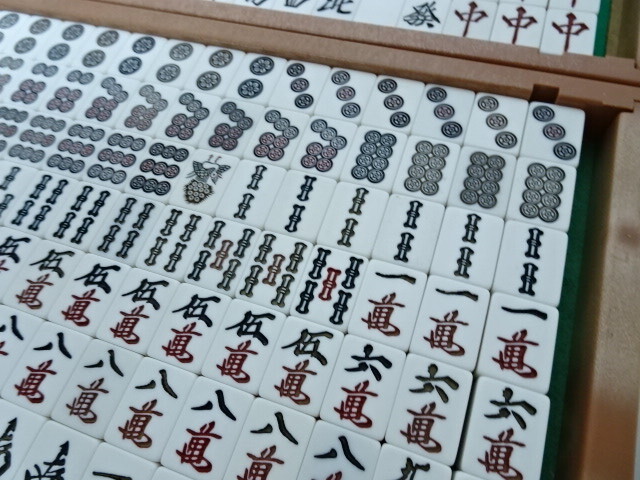 發 中 中 中
一 一 一
萬 萬 萬
伍 伍 伍 伍 伍 伍 伍 六 六 六
萬 萬 萬 萬 萬 萬 萬 萬 萬
八 八 八 八 八 八 八
萬 萬 萬 萬 萬